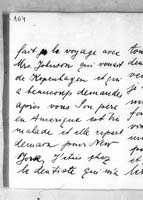 164
fait le voyage avec
Mrs. Johnson qui venait
de Kopenhagen et qui
a beaucoup demandé
après vous. Son père
en Amérique est très
malade et elle repart
demain pour New
York. J'étais chez
le dentiste qui m'a